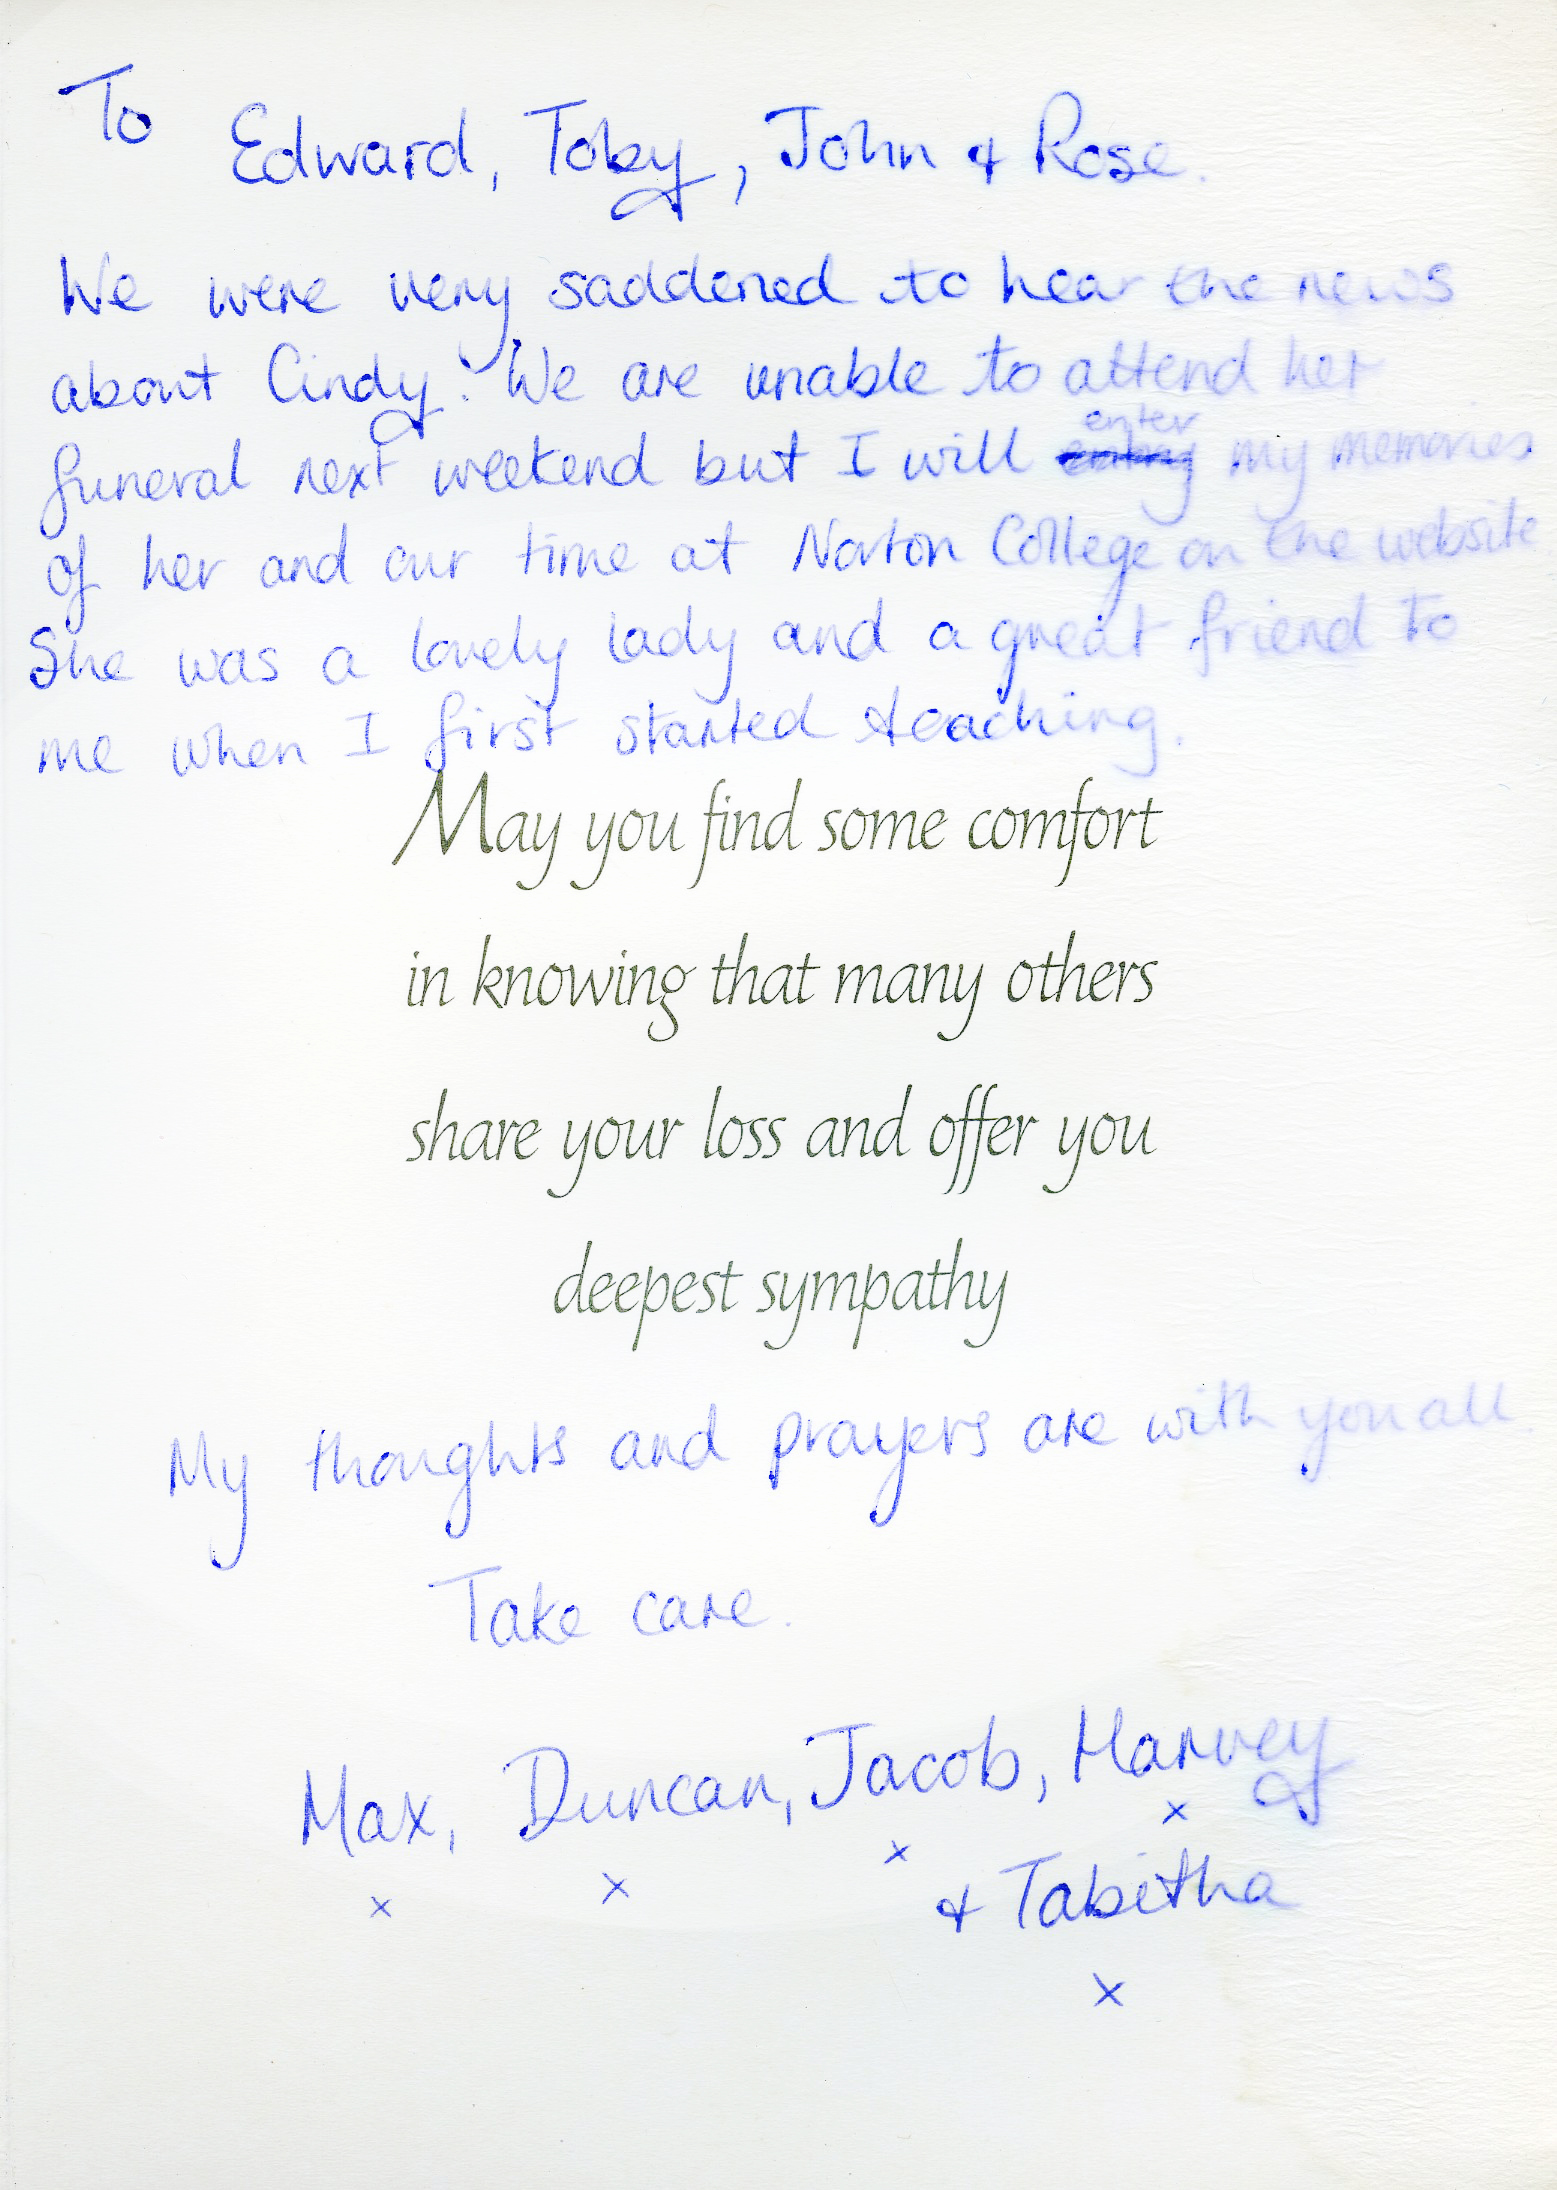 To Edward, Toby, John & Rose.
We were very saddened to hear the news
about Cindy. We are unable to attend her
funeral next weekend but I will enter my memories
of her and our time at Norton College on the website
She was a lovely lady and a great friend to
me when I first started teaching.
May you find some comfort
in knowing that many others
share your loss and offer you
deepest sympathy
My thoughts and prayers are with you all
Take care.
Max, Duncan, Jacob, Harvey
x x x x
& Tabitha
x